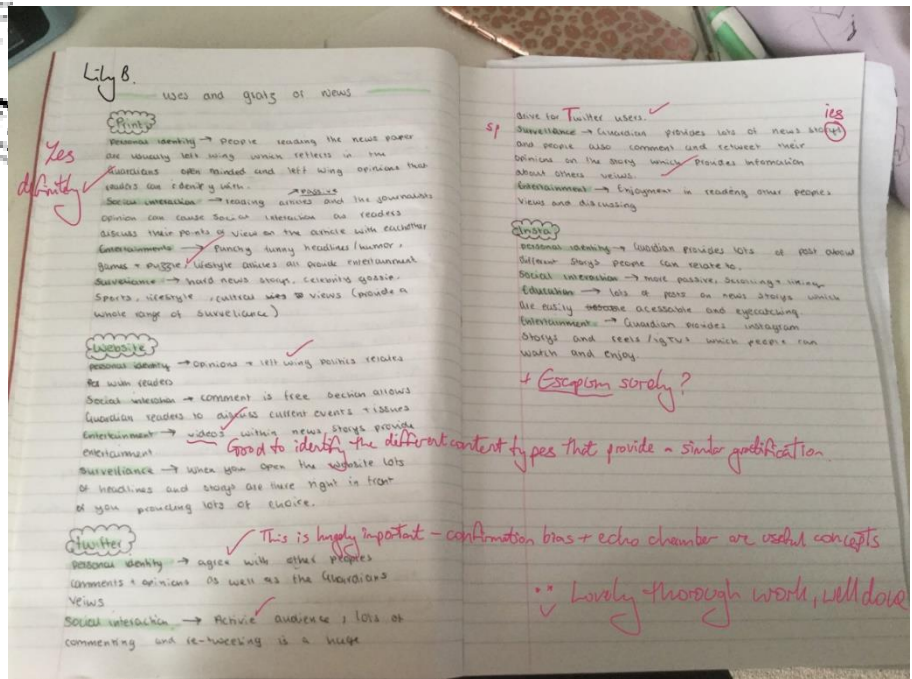 Lily B.
uses and gratz of news
Print
Personal identity → People reading the news paper
are usually left wing which reflects in the
Guardians open minded and left wing opinions that
readers can identify with.
Yes
definitely
→ Passive
Social interaction → reading articles and the journalists
opinion can cause social interaction as readers
discuss their points of view on the article with eachother
Entertainments → Punchy funny headlines/humor,
games + puzzle, lifestyle articles all provide entertainment
Surveillance → hard news storys, celebrity gossip,
Sports, lifestyle, cultural views (provide a
whole range of surveliance)
Website
personal identity → opinions + left wing politics relates
with readers
Social interaction → comment is free section allows
Guardian readers to discuss current events + issues
Entertainment → videos within news storys provide
entertainment
Good to identify the different content types that provide a similar gratification.
Surveillance → when you open the website lots
of headlines and storys are there right in front
of you providing lots of choice.
twitter
personal identity → agree with other peoples
comments + opinions as well as the Guardians
veiws
This is hugely important - confirmation bias + echo chamber are useful concepts
Social interaction → Activie audience, lots of
commenting and re-tweeting is a huge
drive for Twitter users.
sp
ies
Surveillance → Guardian provides lots of news storys
and people also comment and retweet their
opinions on the story which provides information
about others veiws.
Entertainment → Enjoyment in reading other peoples
views and discussing
Insta
personal identity → Guardian provides lots of post about
different storys people can relate to.
Social interaction → more passive, scrolling + liking
Education → lots of posts on news storys which
are easily acessable and eyecatching.
Entertainment → Guardian provides instagram
storys and reels/igTVs which people can
watch and enjoy.
+ Escapism surely?
Lovely thorough work, well done